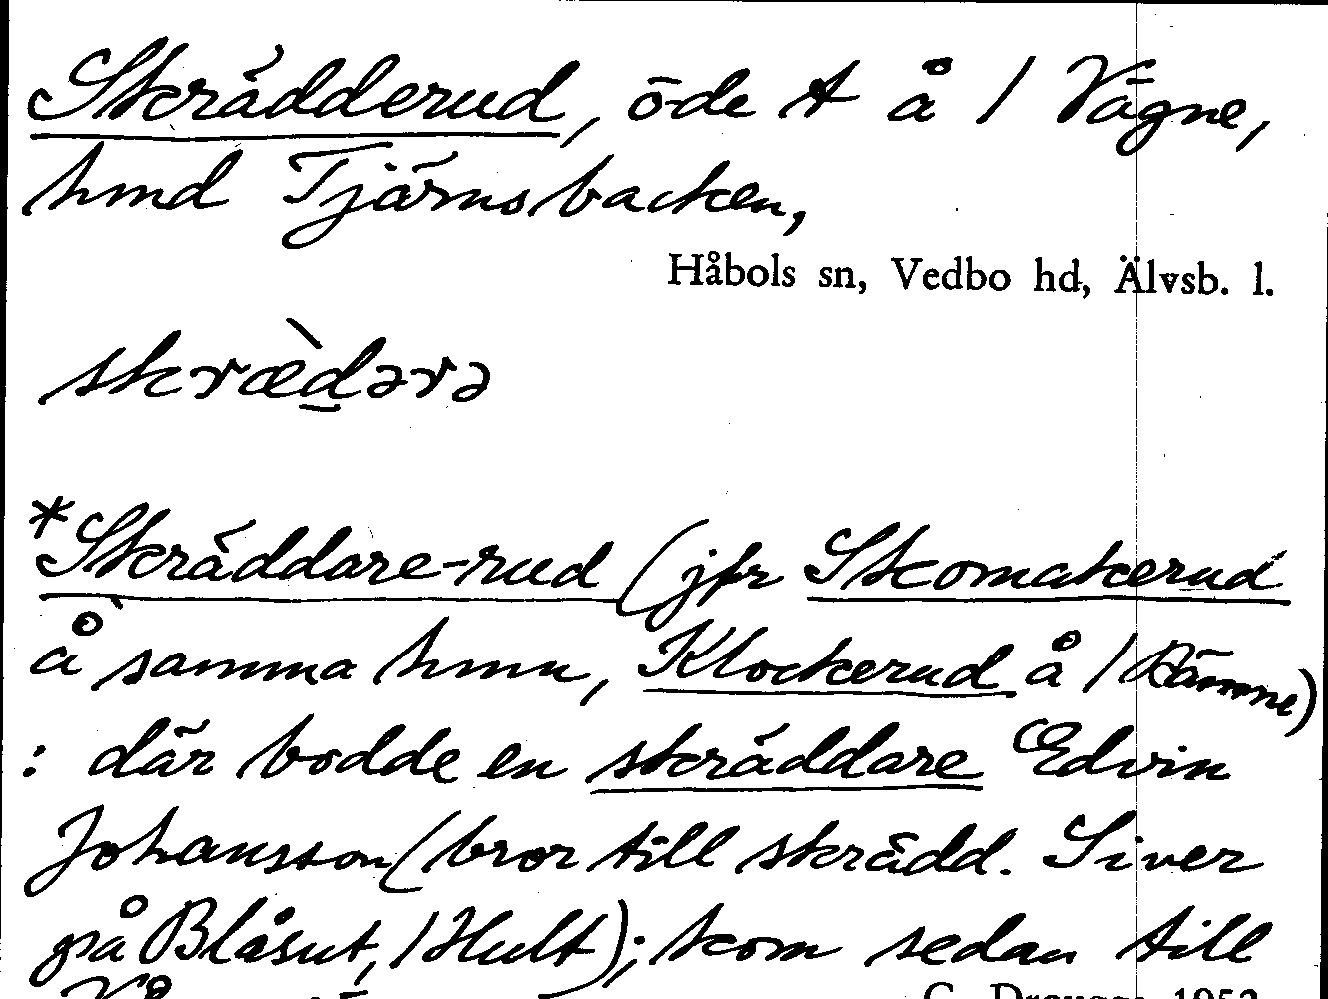 Skrädderud, öde t å / Vägne,
hmd Tjärnsbacken,
Håbols sn, Vedbo hd, Älvsb. l.
skræ̀dərə
*Skräddare-rud (jfr Skomakerud
å samma hmn, Klockerud å / Rämne)
: där bodde en skräddare Edvin
Johansson (bror till skrädd. Siver
på Blåsut, / Hult); kom sedan till